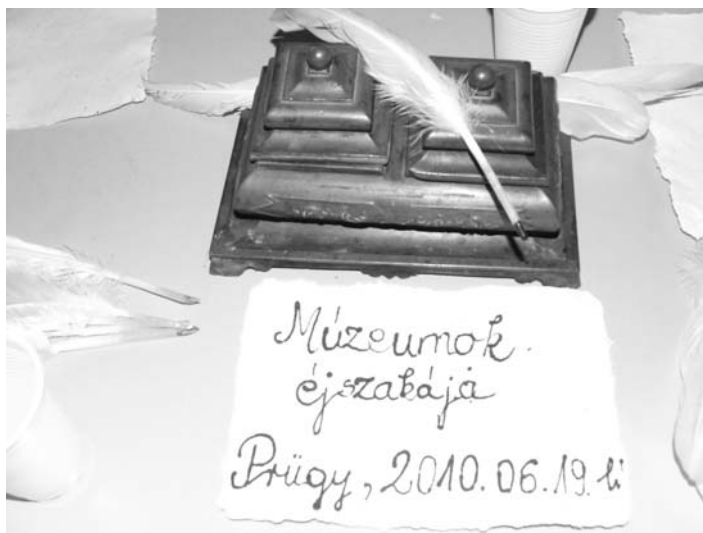 Múzeumok
éjszakája
Prügy, 2010. 06. 19.